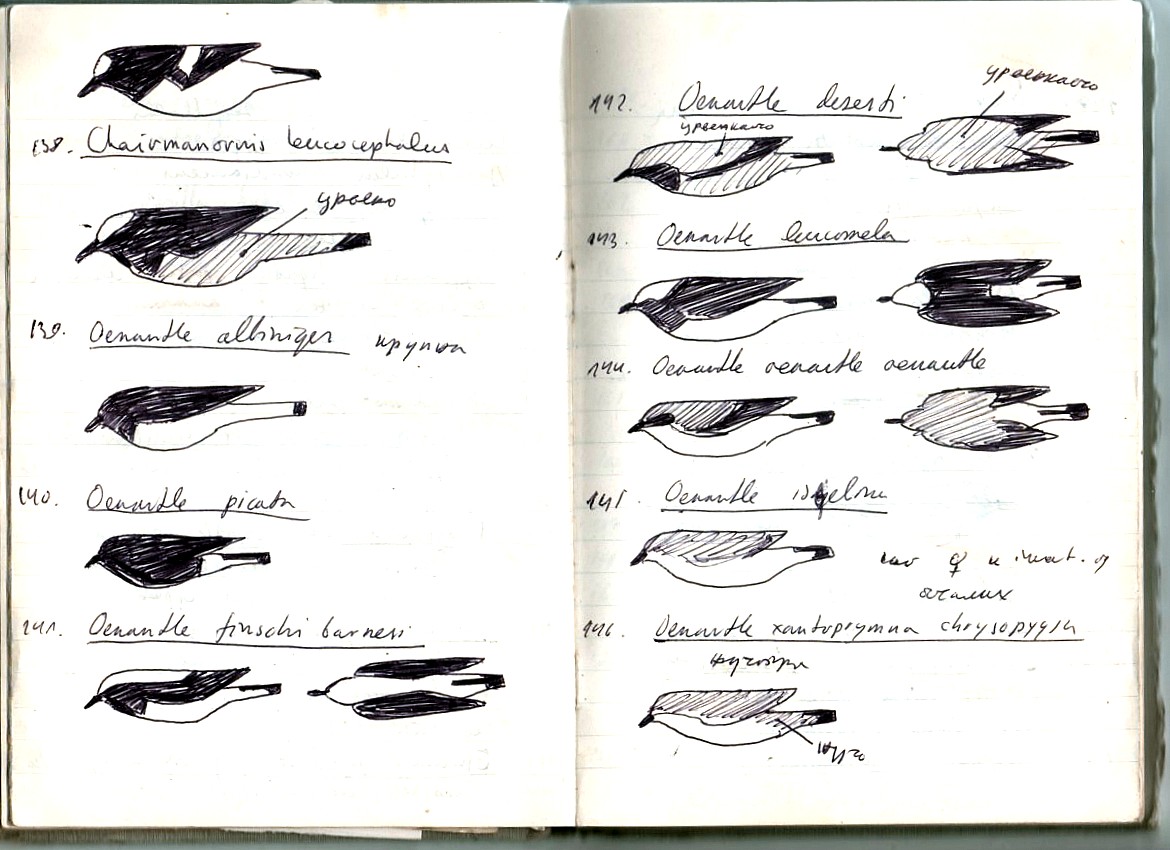 138. Chairmanornis leucocephalus
црвено
139. Oenanthe albiniger крупна
140. Oenanthe picata
141. Oenanthe finschi barnesi
142. Oenanthe deserti
црвенкасто
црвенкасто
143. Oenanthe leucomela
144. Oenanthe oenanthe oenanthe
145. Oenanthe
као ♀ и imat. од
осталих
146. Oenanthe xantoprymna chrysopygia
жуто